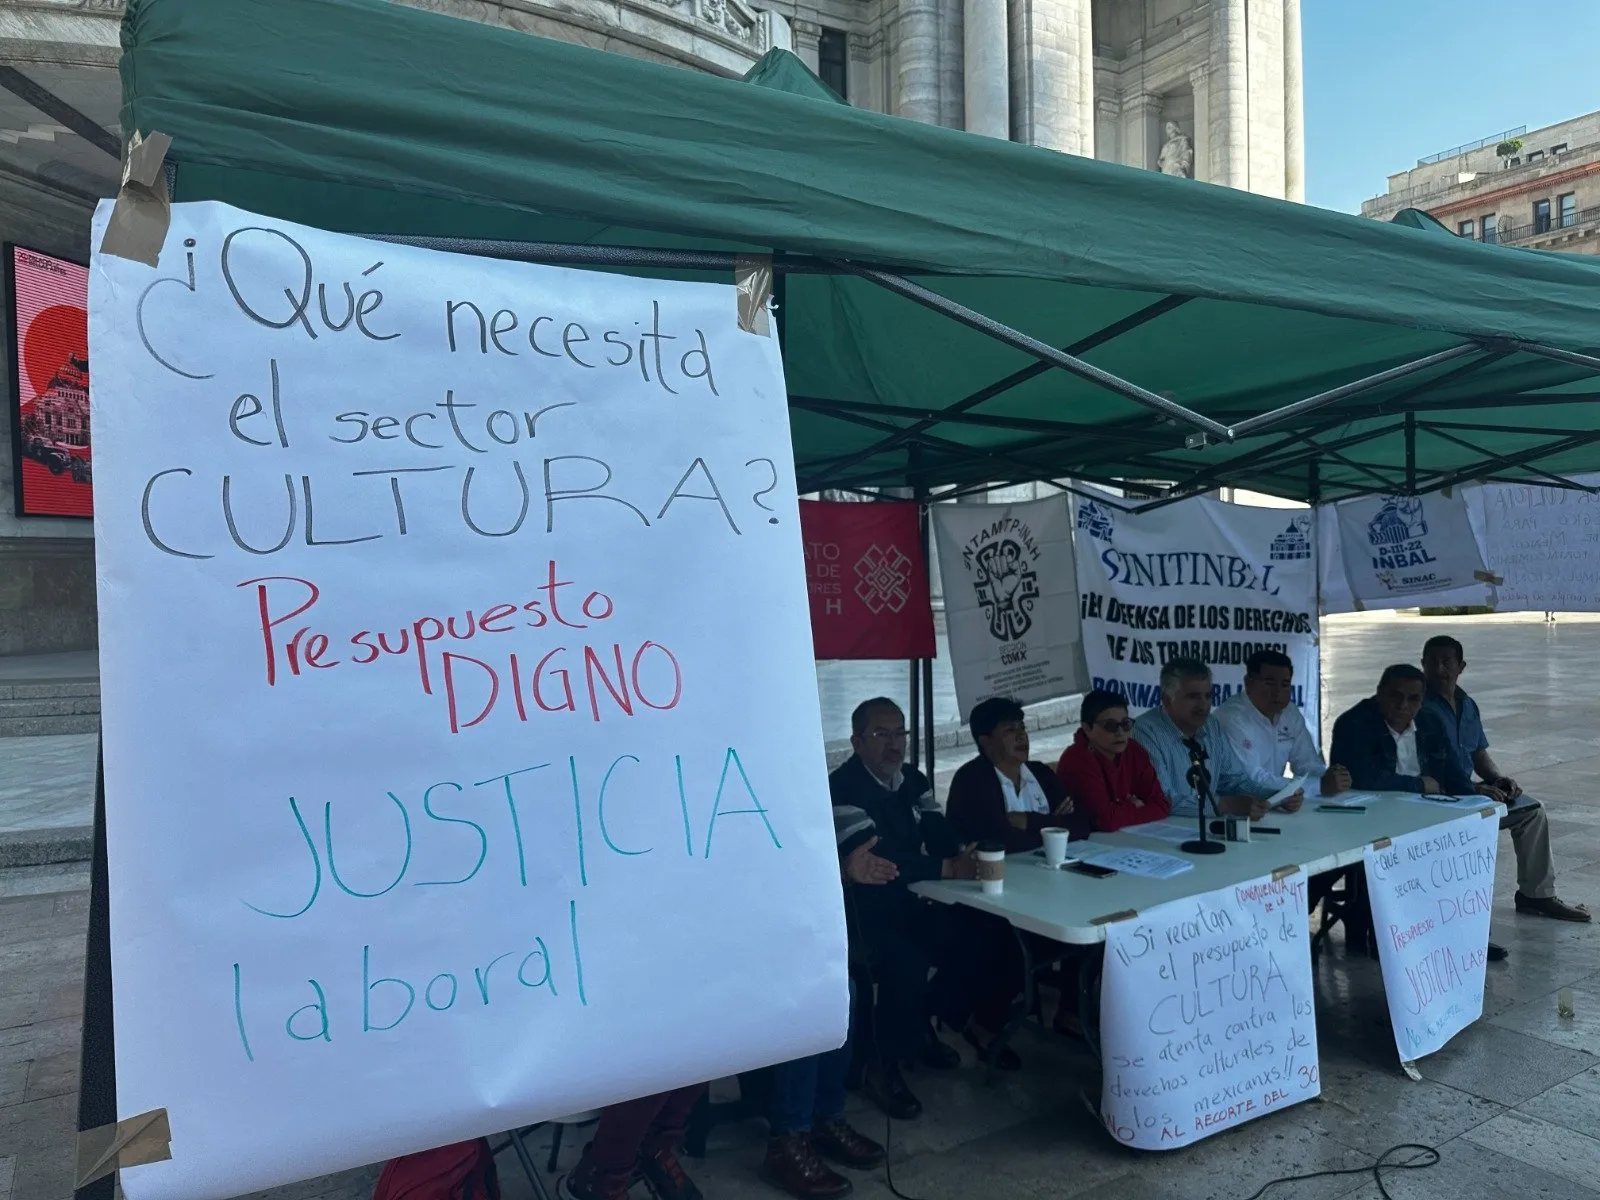 ¿Qué necesita
el sector
CULTURA?
Presupuesto
DIGNO
JUSTICIA
laboral
SNTAMTP-INAH
SECCIÓN
CDMX
SINITINBAL
¡EN DEFENSA DE LOS DERECHOS
DE LOS TRABAJADORES!
D-III-22
INBAL
SINAC
CONGRUENCIA
DE LA 4T
¡¡Si recortan
el presupuesto de
CULTURA
se atenta contra los
derechos culturales de
los mexicanxs!!
NO AL RECORTE DEL 30
¿QUÉ NECESITA EL
SECTOR CULTURA
PRESUPUESTO DIGN
JUSTICIA LAB